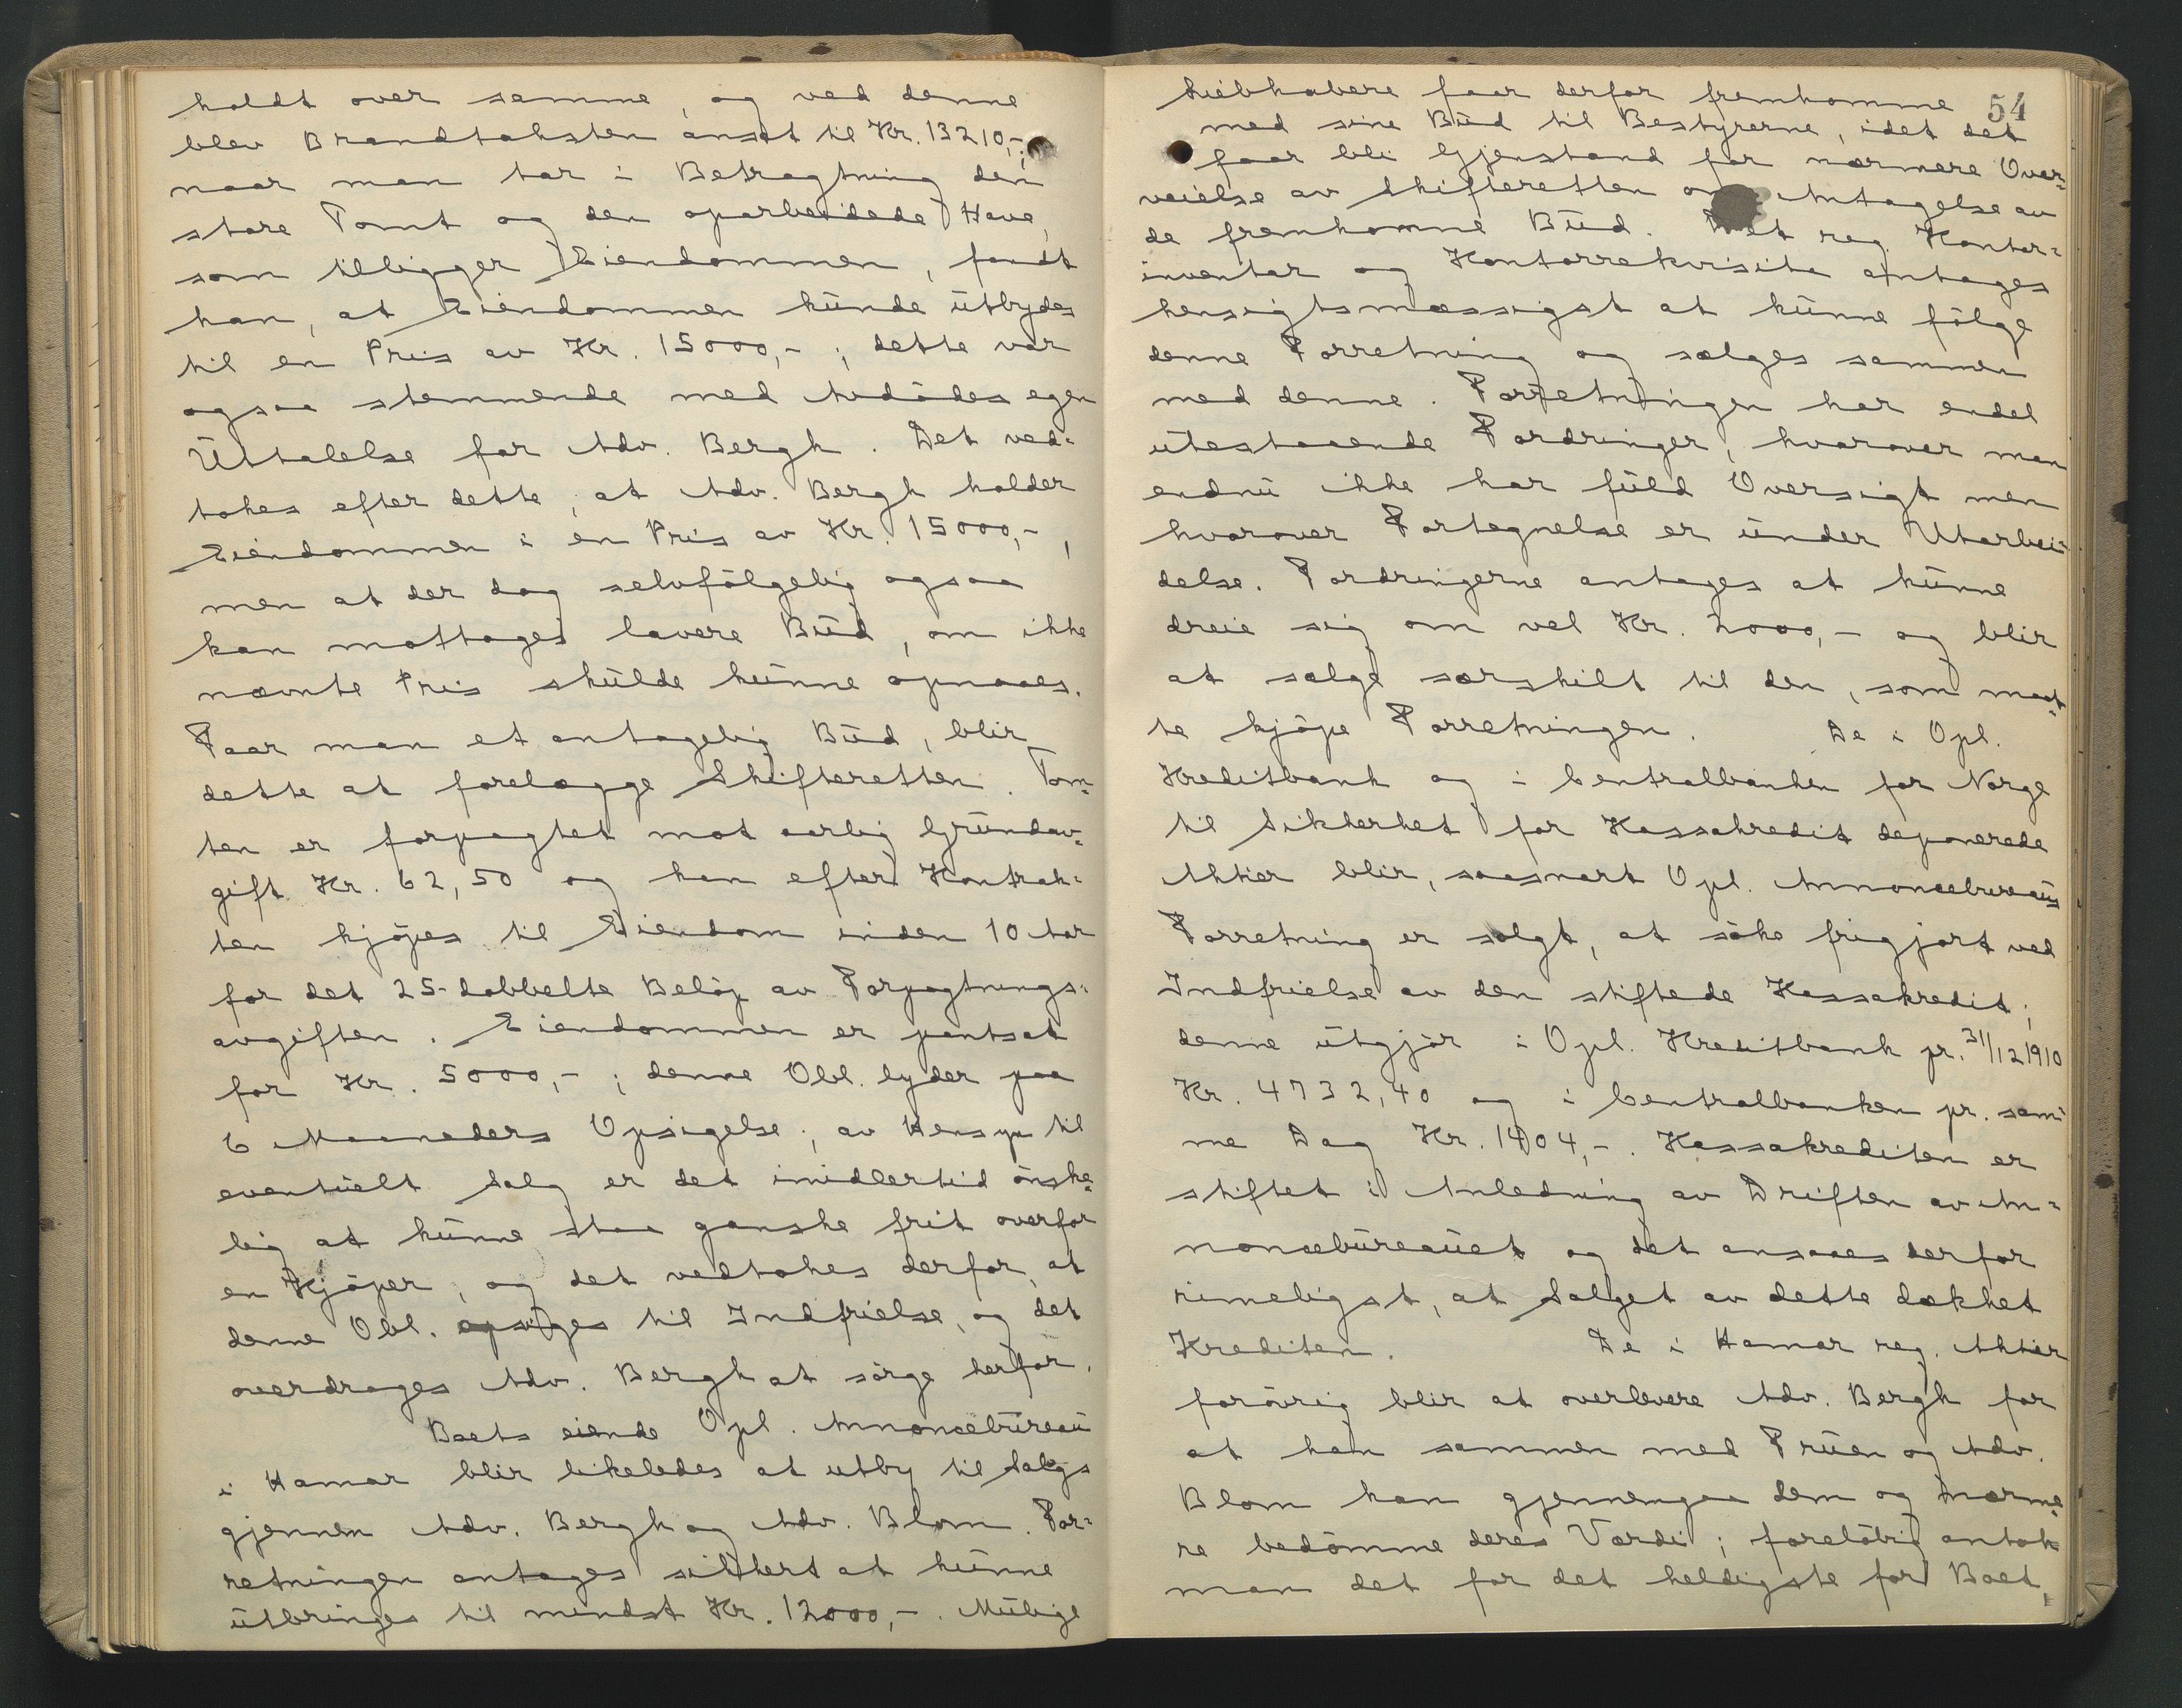 holdt over samme, og ved denne
blev Brandtaksten ansat til Kr. 13210,-;
naar man tar i Betragtning den
store Tomt og den oparbeidede Have,
som tilligger Eiendommen, fandt
han, at Eiendommen kunde utbydes
til en Pris av Kr. 15000,-; dette var
ogsaa stemmende med Avdødes egen
Uttalelse for Adv. Bergh. Det ved-
tokes efter dette, at Adv. Bergh holder
Eiendommen i en Pris av Kr. 15000,-,
men at der dog selvfølgelig ogsaa
kan mottages lavere Bud, om ikke
nævnte Pris skulde kunne opnaaes.
Faar man et antagelig Bud, blir
dette at forelægge Skifteretten. Tom-
ten er forpagtet mot aarlig Grundav-
gift Kr. 62,50 og kan efter Kontrak-
ten kjøpes til Eiendom inden 10 Aar
for det 25-dobbelte Beløp av Forpagtnings-
avgiften. Eiendommen er pantsat
for Kr. 5000,-; denne Obl. lyder paa
6 Maaneders Opsigelse; av Hensyn til
eventuelt Salg er det imidlertid ønske-
lig at kunne staa ganske frit overfor
en Kjøper, og det vedtokes derfor, at
denne Obl. opsiges til Indfrielse, og det
overdrages Adv. Bergh at sørge herfor.
Boets eiende Opl. Annoncebureau
i Hamar blir likeledes at utby til Salgs
gjennem Adv. Bergh og Adv. Blom. For-
retningen antages sikkert at kunne
utbringes til mindst Kr. 12000,-. Mulige
54
Liebhabere faar derfor fremkomme
med sine Bud til Bestyrerne, idet det
faar bli Gjenstand for nærmere Over-
veielse av Skifteretten om Antagelse av
de fremkomne Bud. Det reg. Kontor-
inventar og Kontorrekvisita antages
hensigtsmæssigst at kunne følge
denne Forretning og sælges sammen
med denne. Forretningen har endel
utestaaende Fordringer, hvorover man
endnu ikke har fuld Oversigt men
hvorover Fortegnelse er under Utarbei-
delse. Fordringerne antages at kunne
dreie sig om vel Kr. 2000,- og blir
at sælge særskilt til den, som maat-
te kjøpe Forretningen. De i Opl.
Kreditbank og i Centralbanken for Norge
til Sikkerhet for Kassakredit deponerede
Aktier blir, saasnart Opl. Annoncebureaus
Forretning er solgt, at søke frigjort ved
Indfrielse av den stiftede Kassakredit;
denne utgjør i Opl. Kreditbank pr. 31/12 1910
Kr. 4732,40 og i Centralbanken pr. sam-
me Dag Kr. 1404,-. Kassakrediten er
stiftet i Anledning av Driften av An-
noncebureauet og det ansaaes derfor
rimeligst, at Salget av dette dækket
Krediten. De i Hamar reg. Aktier
forøvrig blir at overlevere Adv. Bergh for
at han sammen med Fruen og Adv.
Blom kan gjennemgaa dem og nærme-
re bedømme deres Værdi; foreløbig antok
man det for det heldigste for Boet,